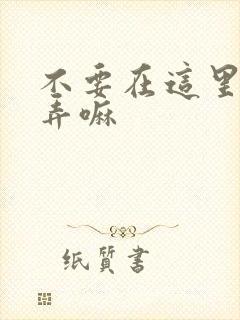 不要在這里
弄嘛
纸質書